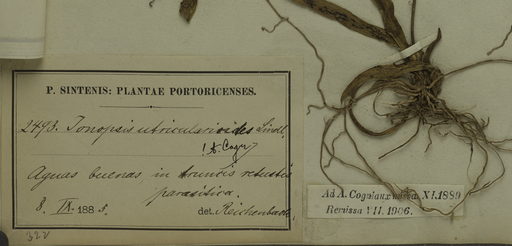 P. SINTENIS: PLANTAE PORTORICENSES.
2493. Ionopsis utricularioides Lindl.
! A. Cogn
Aguas buenas in truncis vetustis
parasitica.
8. IX. 1885. det. Reichenbach.
Ad A. Cogniaux missa XI.1889
Remissa VII. 1906.
322